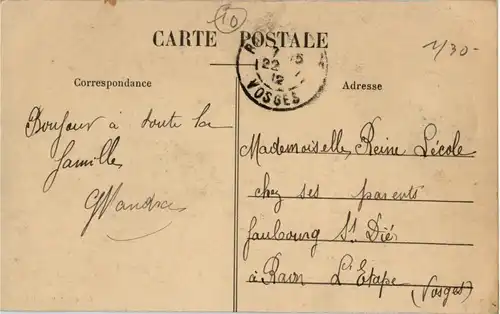 10
1/30-
CARTE POSTALE
7 15
22
12
VOSGES
Correspondance
Adresse
Bonjour à toute la
famille
Mademoiselle Reine Lécole
chez ses parents
faubourg St Dié
à Raon l'Etape
(Vosges)